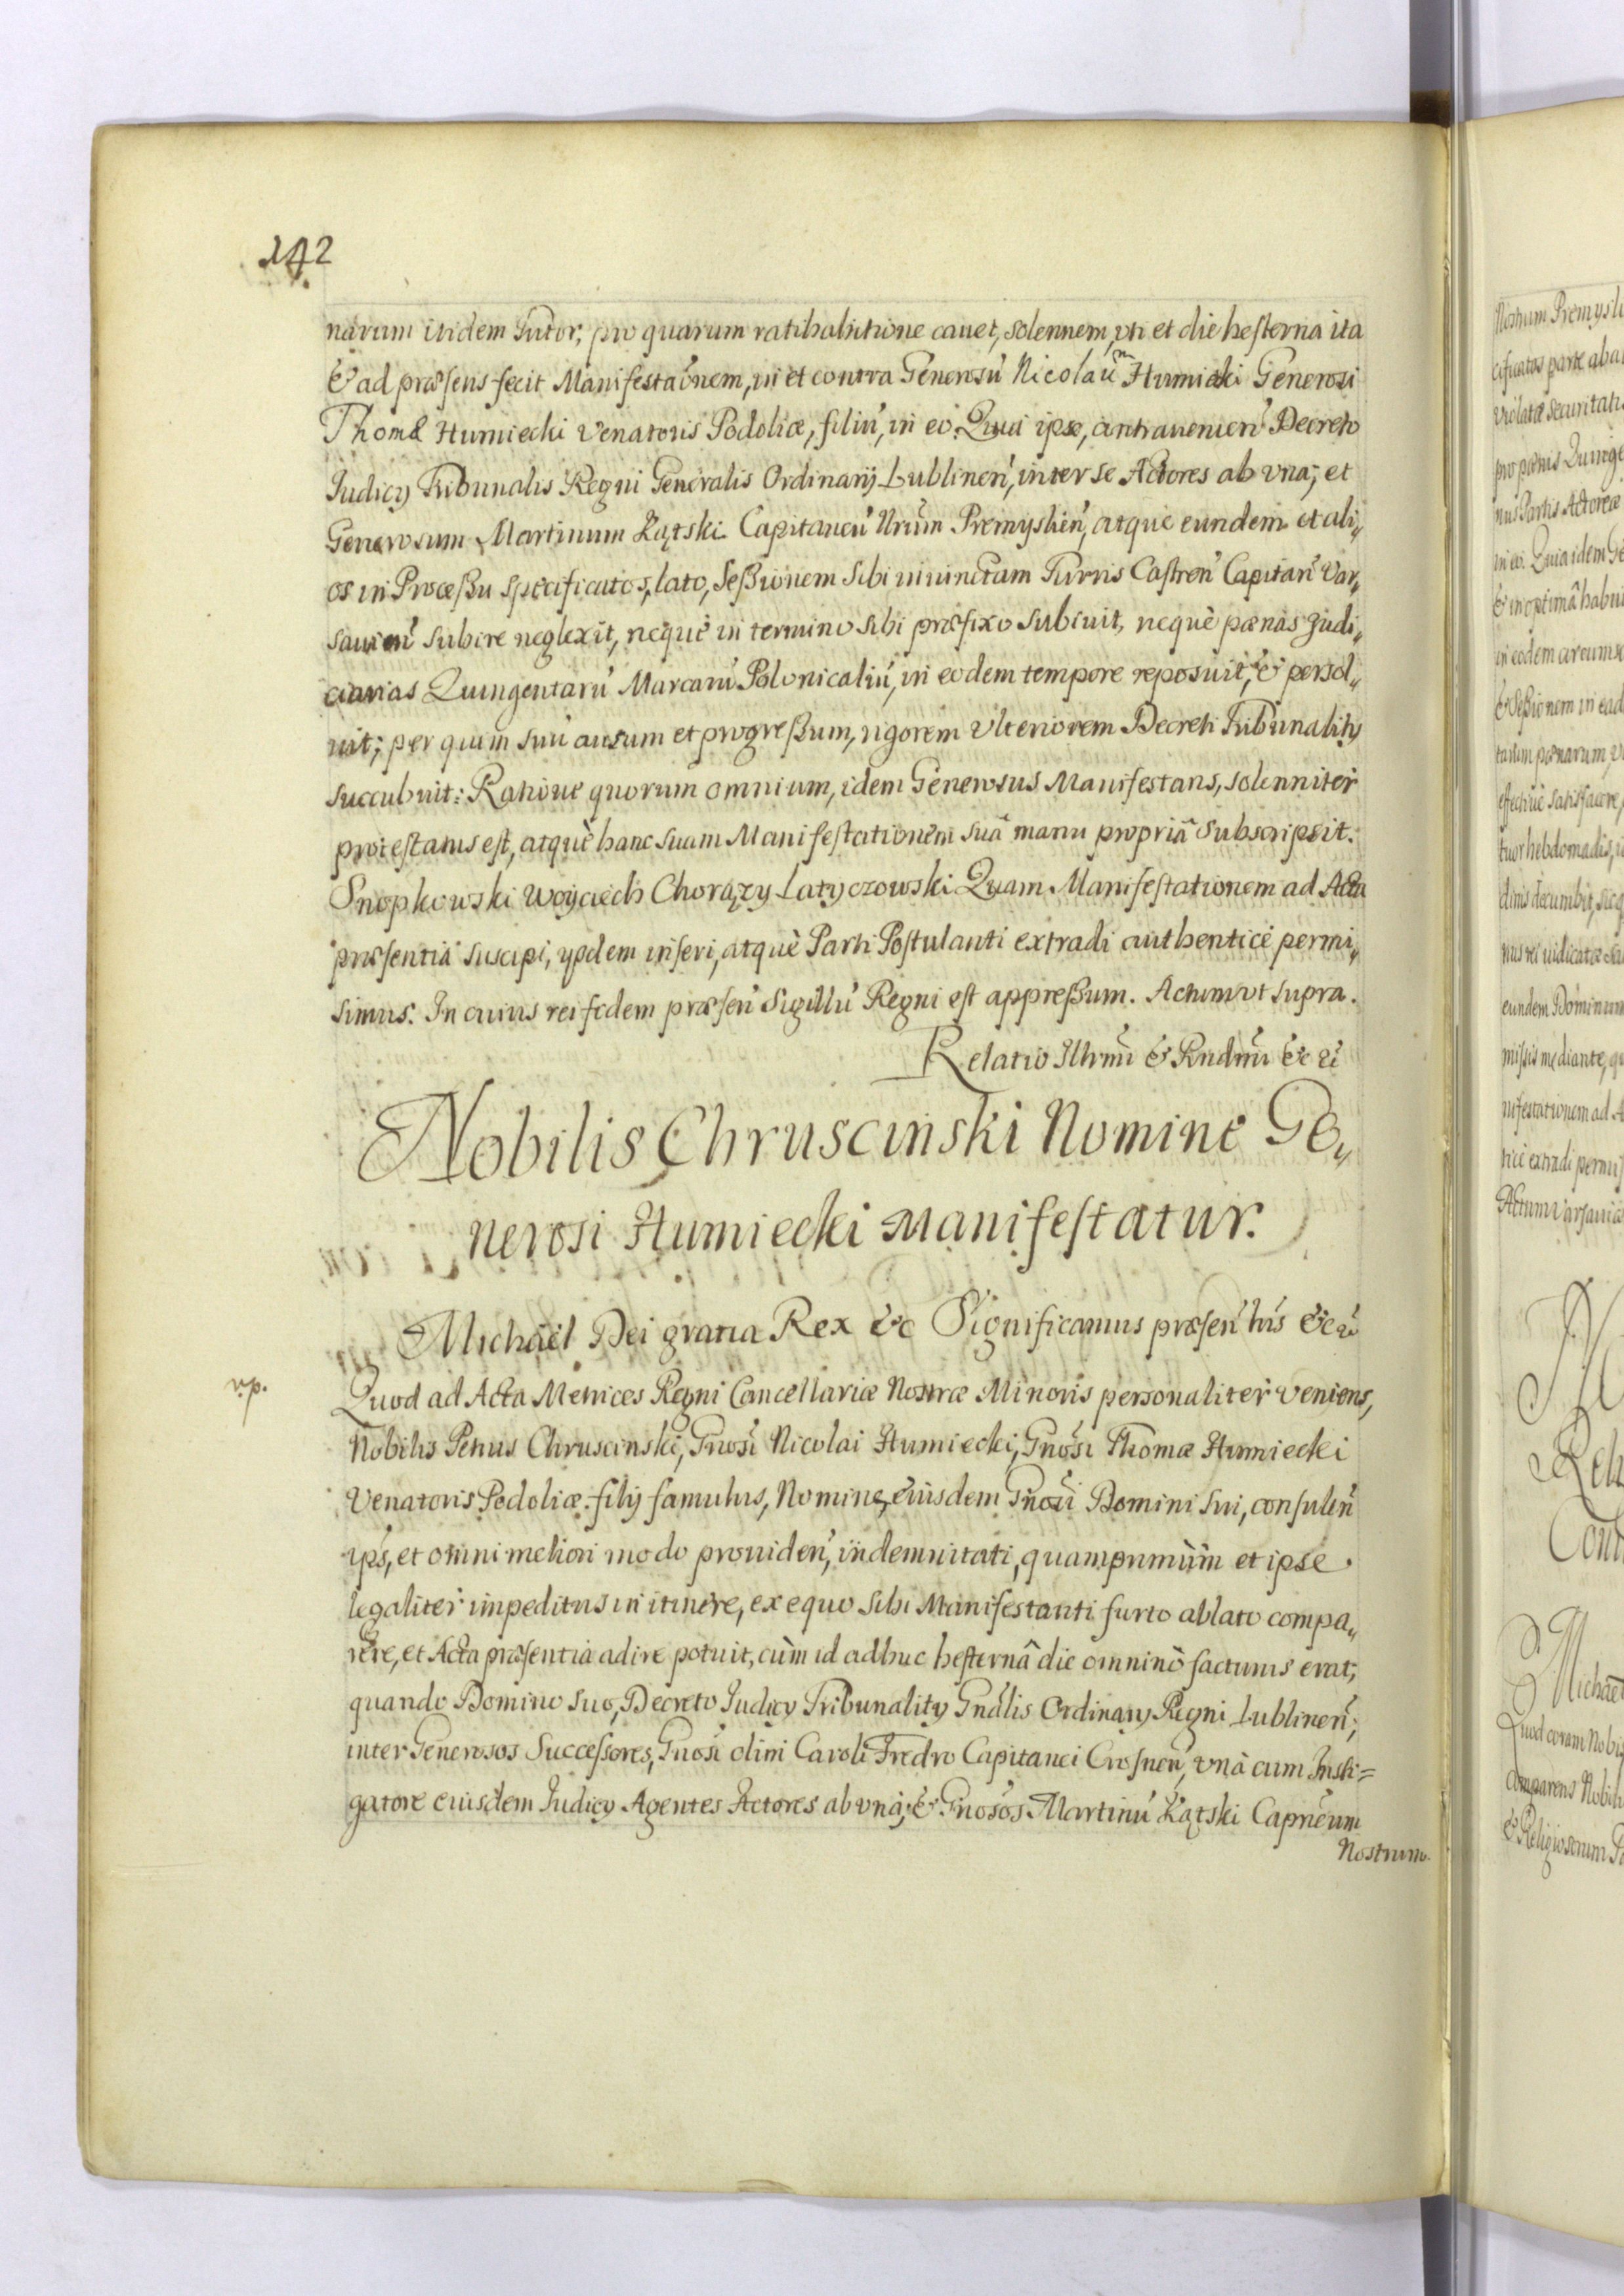 142
narum itidem Tutor, pro quarum ratihabitione cauet, solennem, vti et die hesterna ita
& ad præsens fecit Manifestaõnem, in et contra Generosũ Nicolaũ Humiecki Generosi
Thomæ Humiecki Venatoris Podoliæ, filiũ, in eo. Quia ipse, contraueniens Decreto
Iudicÿ Tribunalis Regni Generalis Ordinarÿ Lublineñ, inter se Actores ab vna, et
Generosum Martinum Kątski Capitaneũ Nrũm Premyslieñ, atque eundem et ali„
os in Processu specificatos, lato, Sessionem sibi iniunctam Turris Castreñ Capitañ Var„
sauieñ subire neglexit, nequè in termino sibi præfixo subiuit, nequè pœnas Iudi„
ciarias Quingentarũ Marcarũ Polonicaliũ, in eodem tempore reposuit, & persol„
uit; per quem suũ ausum et progressum, rigorem vlteriorem Decreti Tribunalitÿ
succubuit: Ratione quorum omnium, idem Generosus Manifestans, solenniter
protestatus est, atquè hanc suam Manifestationem suâ manu propriâ subscripsit.
Snopkowski Woyciech Chorązy Latyczowski Quam Manifestationem ad Acta
præsentia suscipi, ÿsdem inseri, atquè Parti Postulanti extradi authenticè permi„
simus. In cuius rei fidem præseñ Sigillũ Regni est appressum. Actum vt supra.
Relatio Illrmi & Rndmi &c &
Nobilis Chruscinski Nomine Ge„
nerosi Humiecki Manifestatur.
Michaël Dei gratia Rex &c Significamus præseñ tris &c &
r.p.
Quod ad Acta Metrices Regni Cancellariæ Nostræ Minoris personaliter veniens,
Nobilis Petrus Chruscinski, Gnosi Nicolai Humiecki, Gnosi Thomæ Humiecki
Venatoris Podoliæ filÿ famulus, Nomine eiusdem Gnosi Domini sui, consuleñ
ips, et omni meliori modo prouideñ, indemnitati, quamprimùm et ipse
legaliter impeditus in itinere, ex equo sibi Manifestanti furto ablato compa„
rere, et Acta præsentia adire potuit, cùm id adhuc hesternâ die omninò facturus erat,
quando Domino suo, Decreto Iudicÿ Tribunalitÿ Gnalis Ordinarÿ Regni Lublineñ,
inter Generosos Successores, Gnosi olim Caroli Fredro Capitanei Crosneñ, vnà cum Insti=
gatore eiusdem Iudicÿ Agentes Actores ab vnà, & Gnosos Martinũ Kątski Capneum
Nostrum